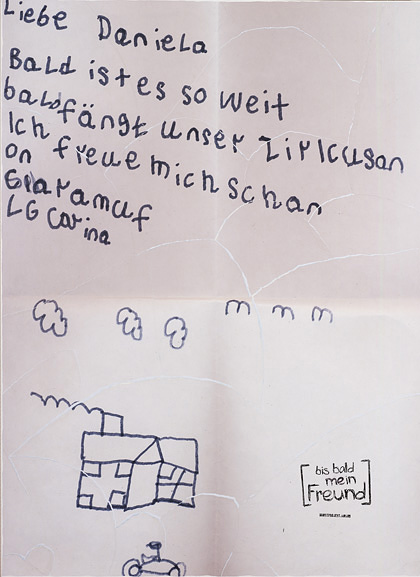 Liebe Daniela
Bald ist es so weit
bald fängt unser Zirkusan
Ich freue mich schan
on
LG Carina
bis bald
mein
Freund